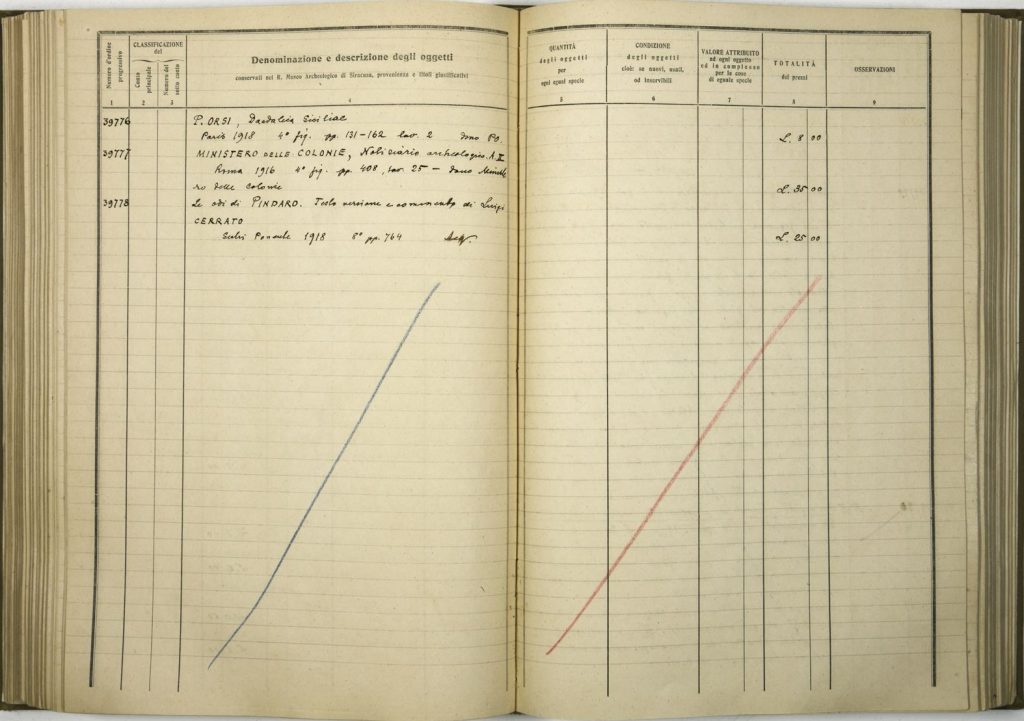 Numero d'ordine progressivo
CLASSIFICAZIONE
del
Conto principale
Numero del sotto conto
Denominazione e descrizione degli oggetti
conservati nel R. Museo Archeologico di Siracusa, provenienza e titoli giustificativi
QUANTITÀ
degli oggetti
per
ogni egual specie
CONDIZIONE
degli oggetti
cioè: se nuovi, usati,
od inservibili
VALORE ATTRIBUITO
ad ogni oggetto
ed in complesso
per le cose
di eguale specie
TOTALITÀ
dei prezzi
OSSERVAZIONI
1 2 3 4 5 6 7 8 9
39776 P. ORSI, Daedalica Siciliae
Paris 1918 4° fig. pp. 131-162 tav. 2 dono PO. L. 8 00
39777 MINISTERO DELLE COLONIE, Notiziario archeologico. A. II
Roma 1916 4° fig. pp. 408, tav. 25 — dono Ministe
ro delle Colonie L. 35 00
39778 Le odi di PINDARO. Testo versione e commento di Luigi
CERRATO
Sestri Ponente 1918 8° pp. 764 L. 25 00